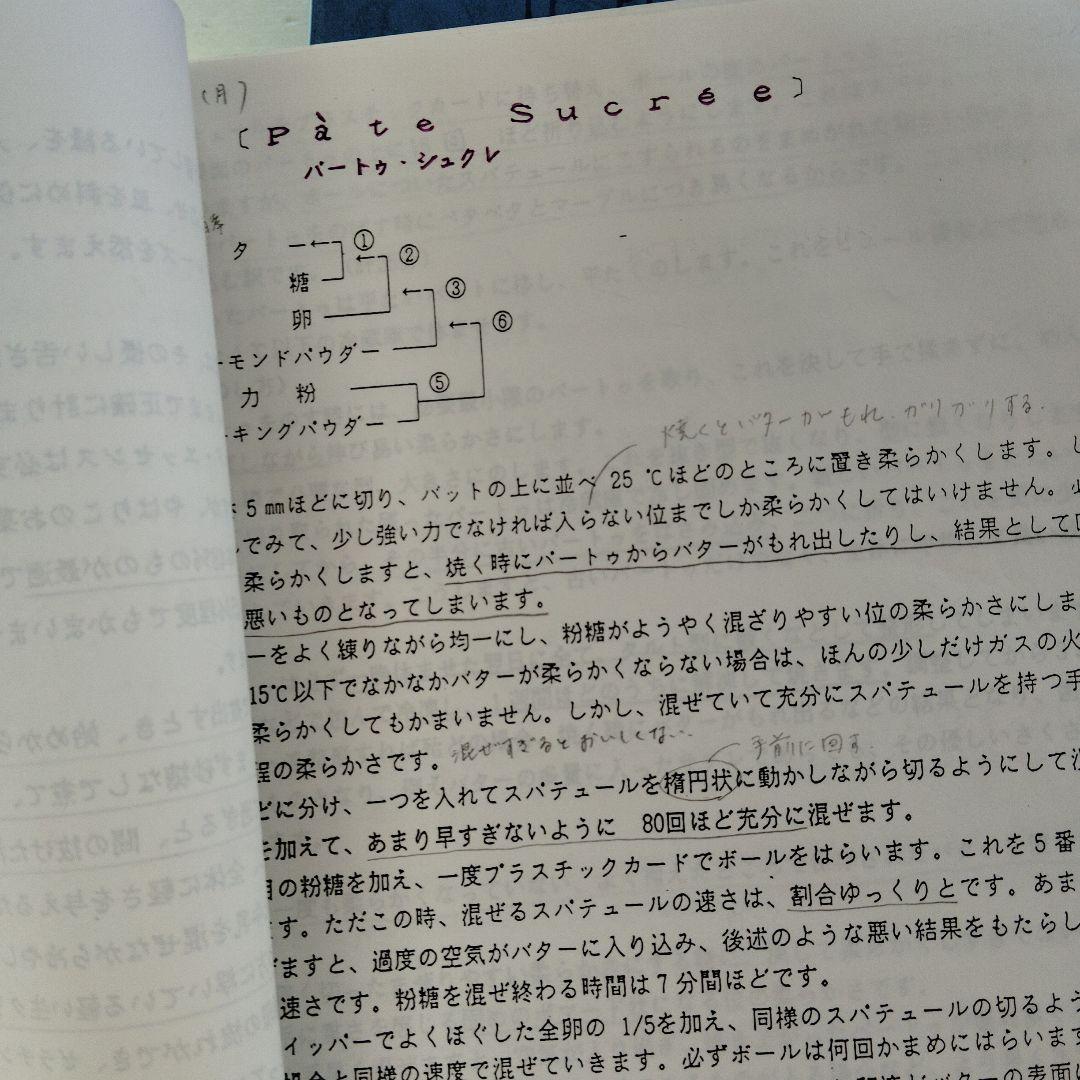 (月)
〔Pàte Sucrée〕
パートゥ・シュクレ
ター ①
糖 ②
卵 ③
ーモンドパウダー ⑥
力粉 ⑤
ーキングパウダー
焼くとバターがもれ、ガリガリする.
5㎜ほどに切り、バットの上に並べ 25℃ほどのところに置き柔らかくします。し
でみて、少し強い力でなければ入らない位までしか柔らかくしてはいけません。必
柔らかくしますと、焼く時にパートゥからバターがもれ出したりし、結果として口
悪いものとなってしまいます。
ーをよく練りながら均一にし、粉糖がようやく混ざりやすい位の柔らかさにしま
15℃以下でなかなかバターが柔らかくならない場合は、ほんの少しだけガスの火
柔らかくしてもかまいません。しかし、混ぜていて充分にスパテュールを持つ手
程の柔らかさです。混ぜすぎるとおいしくない… 手前に回す.
どに分け、一つを入れてスパテュールを楕円状に動かしながら切るようにして混
を加えて、あまり早すぎないように 80回ほど充分に混ぜます。
目の粉糖を加え、一度プラスチックカードでボールをはらいます。これを5番
す。ただこの時、混ぜるスパテュールの速さは、割合ゆっくりとです。あま
ますと、過度の空気がバターに入り込み、後述のような悪い結果をもたらし
速さです。粉糖を混ぜ終わる時間は7分間ほどです。
イッパーでよくほぐした全卵の 1/5を加え、同様のスパテュールの切るよう
合と同様の速度で混ぜていきます。必ずボールは何回かまめにはらいます